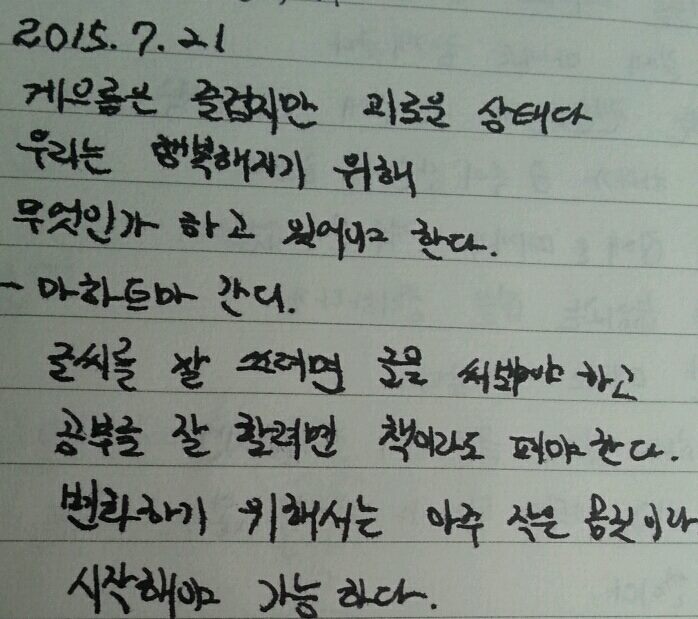 2015. 7. 21
게으름은 즐겁지만 괴로운 상태다
우리는 행복해지기 위해
무엇인가 하고 있어야 한다.
- 마하트마 간디.
글씨를 잘 쓰려면 글을 써봐야 하고
공부를 잘 할려면 책이라도 펴야 한다.
변화하기 위해서는 아주 작은 몸짓이라
시작해야 가능하다.